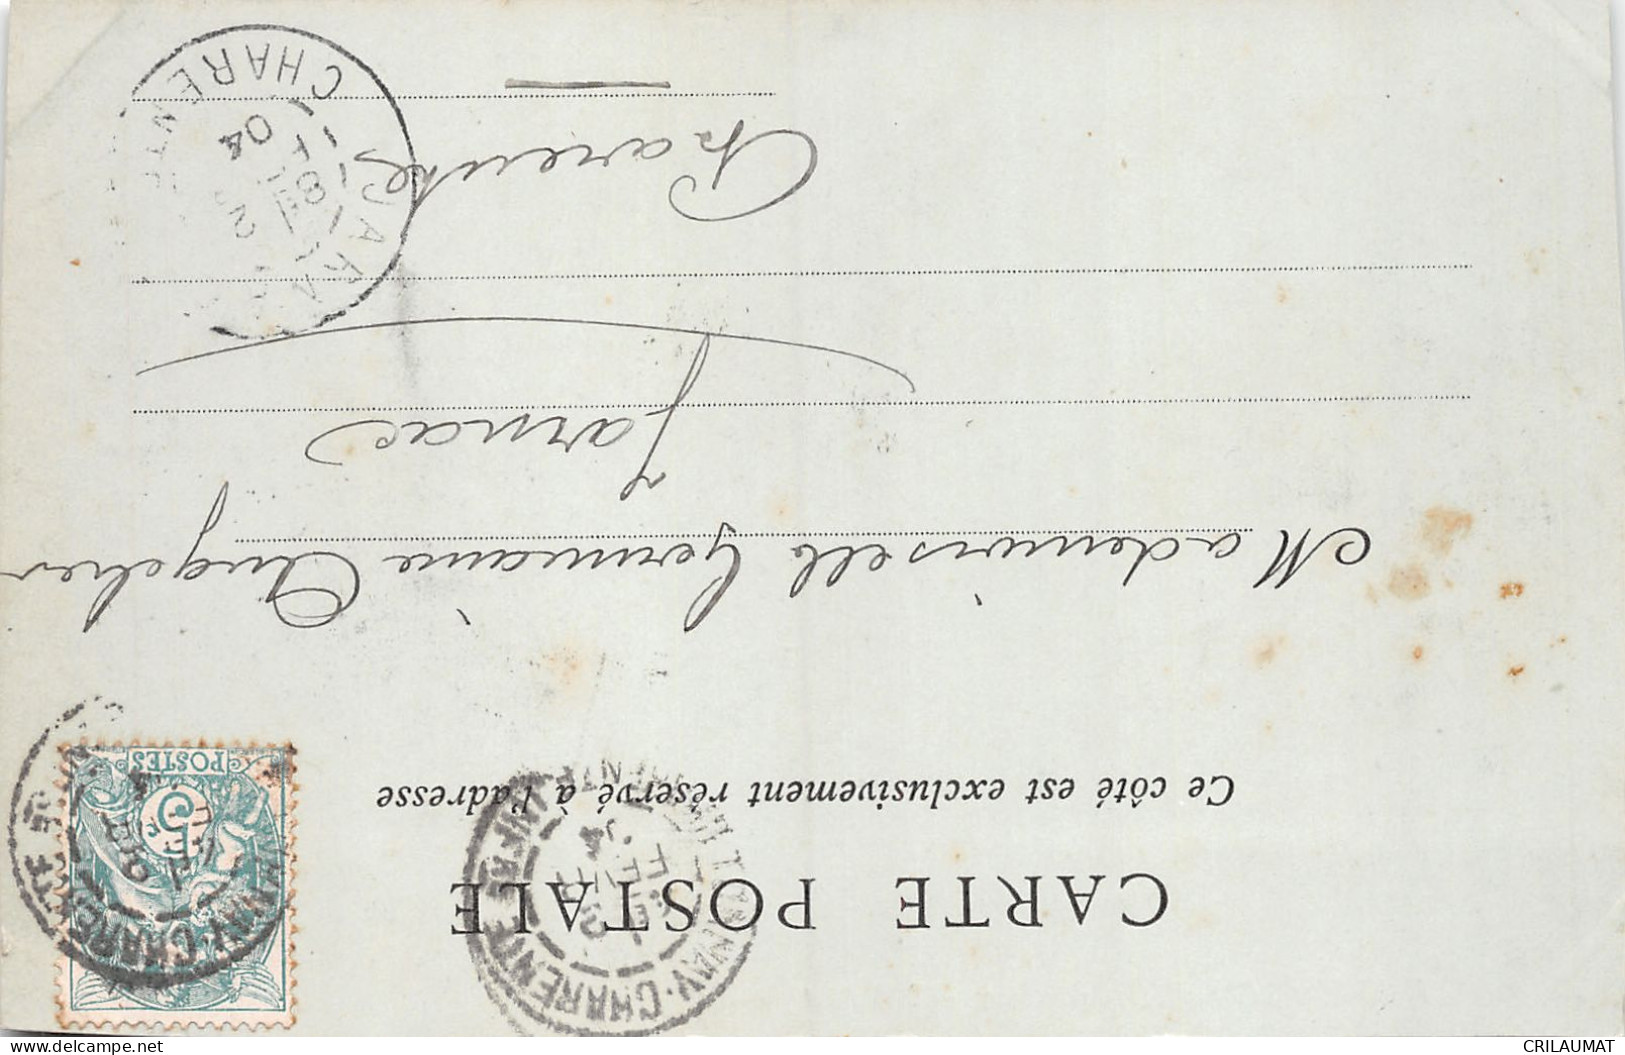 CARTE POSTALE
Ce côté est exclusivement réservé à l'adresse
Mademoiselle Germaine Angelier
à Jarnac
Charente
POSTES
5
JARNAC
CHARENTE
04
CHARENTE
CHARENTE
FEVR
CRILAUMAT